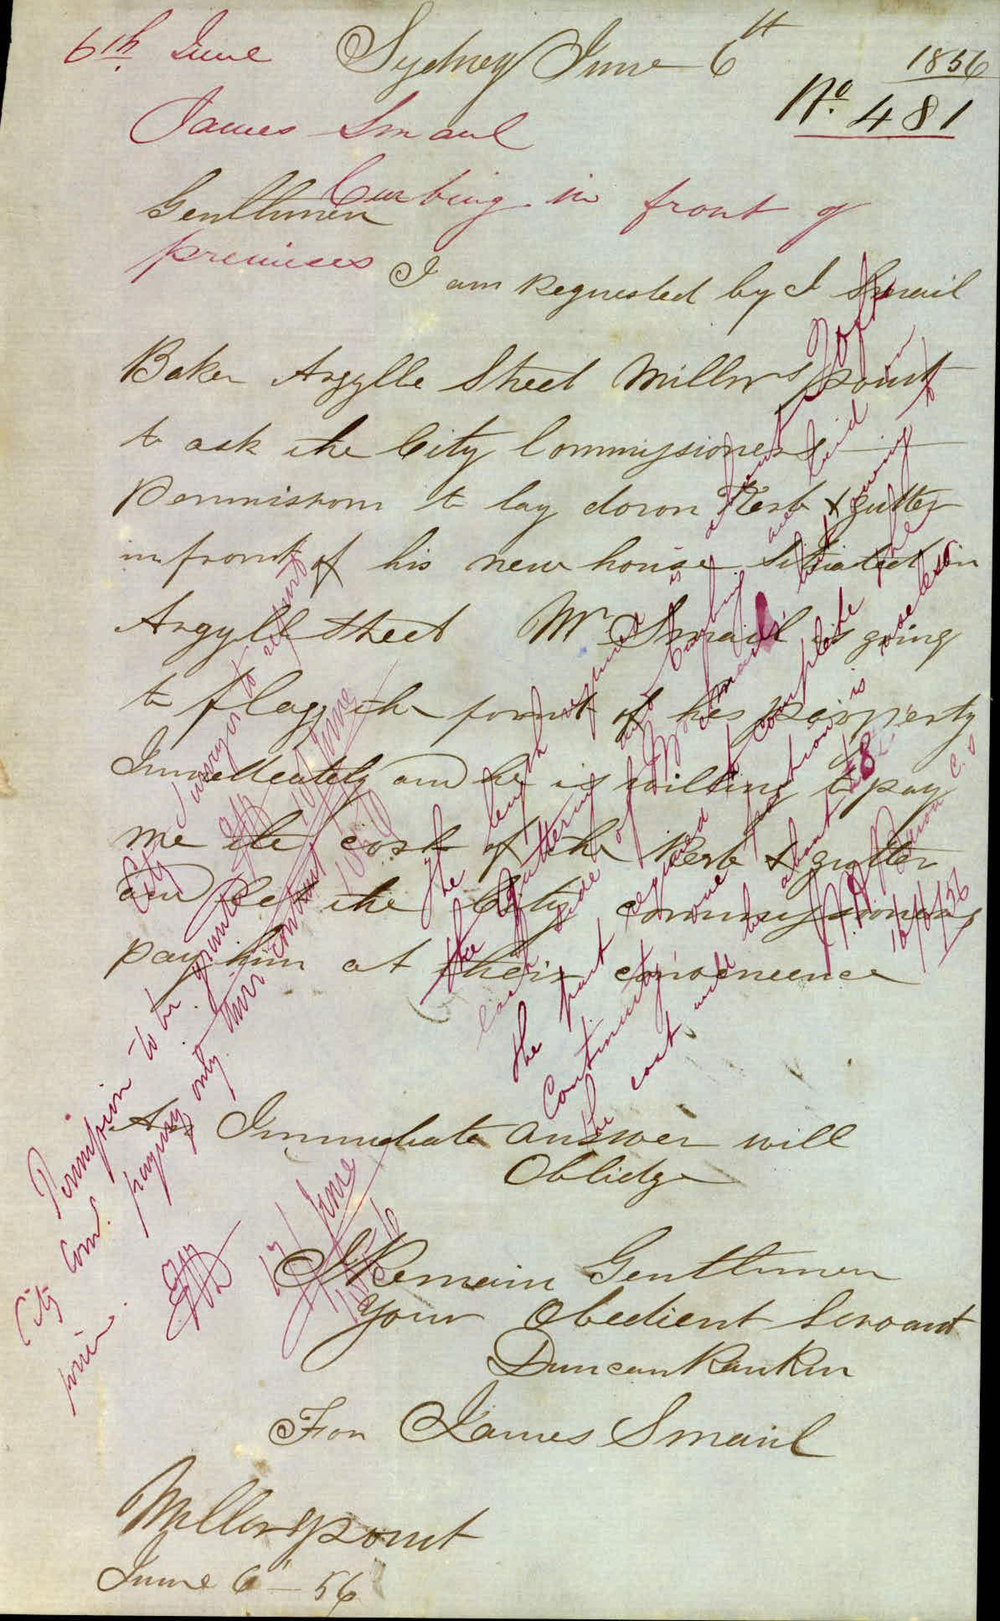 6th. June
Sydney June 6th 1856
No. 481
James Smail
Curbing in front of
premises
Gentlmen
I am Requested by J Smail
Baker Argylle Street Millers point
to ask the City Commissioners
Permission to lay down Kerb & gutter
in front of his new house Situated in
Argyll Street Mr Smail is going
to flagg the front of his property
Immedeately and he is willing to pay
me the cost of the Kerb & gutter
and let the City commissioners
pay him at their conveneence
An Immediate answer will
Oblidge
I Remain Gentlmen
Your Obedient Servant
Duncan Rankin
For James Smail
Millers point
June 6th – 56
City Surveyor to report
10 June
1856
The length required is about 70 feet
the guttering and Curbing are laid on
each side of Mr Smail's but owing to
the part required to complete the
Continuity one portion is
the cost will be about £8
C.S
16/6/56
Permission to be granted
City Com. paying only their contract
price.
17 June
1856